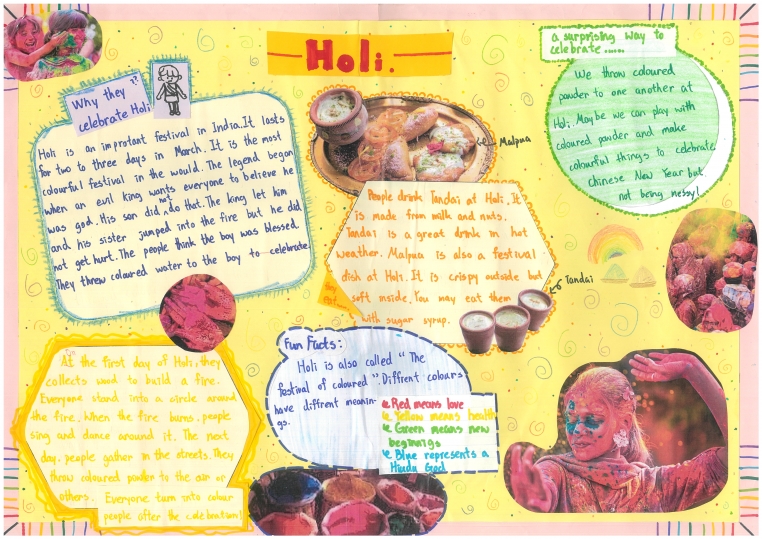 Holi.
Why they
celebrate Holi
Holi is an improtant festival in India.It lasts
for two to three days in March. It is the most
colourful festival in the would. The legend began
when an evil king wants everyone to believe he
was god. His son did not do that. The king let him
and his sister jumped into the fire but he did
not get hurt. The people think the boy was blessed.
They threw coloured water to the boy to celebrate.
Malpua
People drink Tandai at Holi. It
is made from milk and nuts.
Tandai is a great drink in hot
weather. Malpua is also a festival
dish at Holi. It is crispy outside but
soft inside. You may eat them
with sugar syrup.
they
eat
Tandai
a surprising way to
celebrate.....
We throw coloured
powder to one another at
Holi. Maybe we can play with
coloured powder and make
colourful things to celebrate
Chinese New Year but
not being messy!
At the first day of Holi, they
collects wood to build a fire.
Everyone stand into a circle around
the fire. When the fire burns, people
sing and dance around it. The next
day, people gather in the streets. They
throw coloured powder to the air or
others. Everyone turn into colour
people after the celebration!
Fun Facts:
Holi is also called "The
festival of coloured". Diffrent colours
have diffrent meanin-
gs.
Red means love
Yellow means health
Green means new
beginnigs
Blue represents a
Hindu God